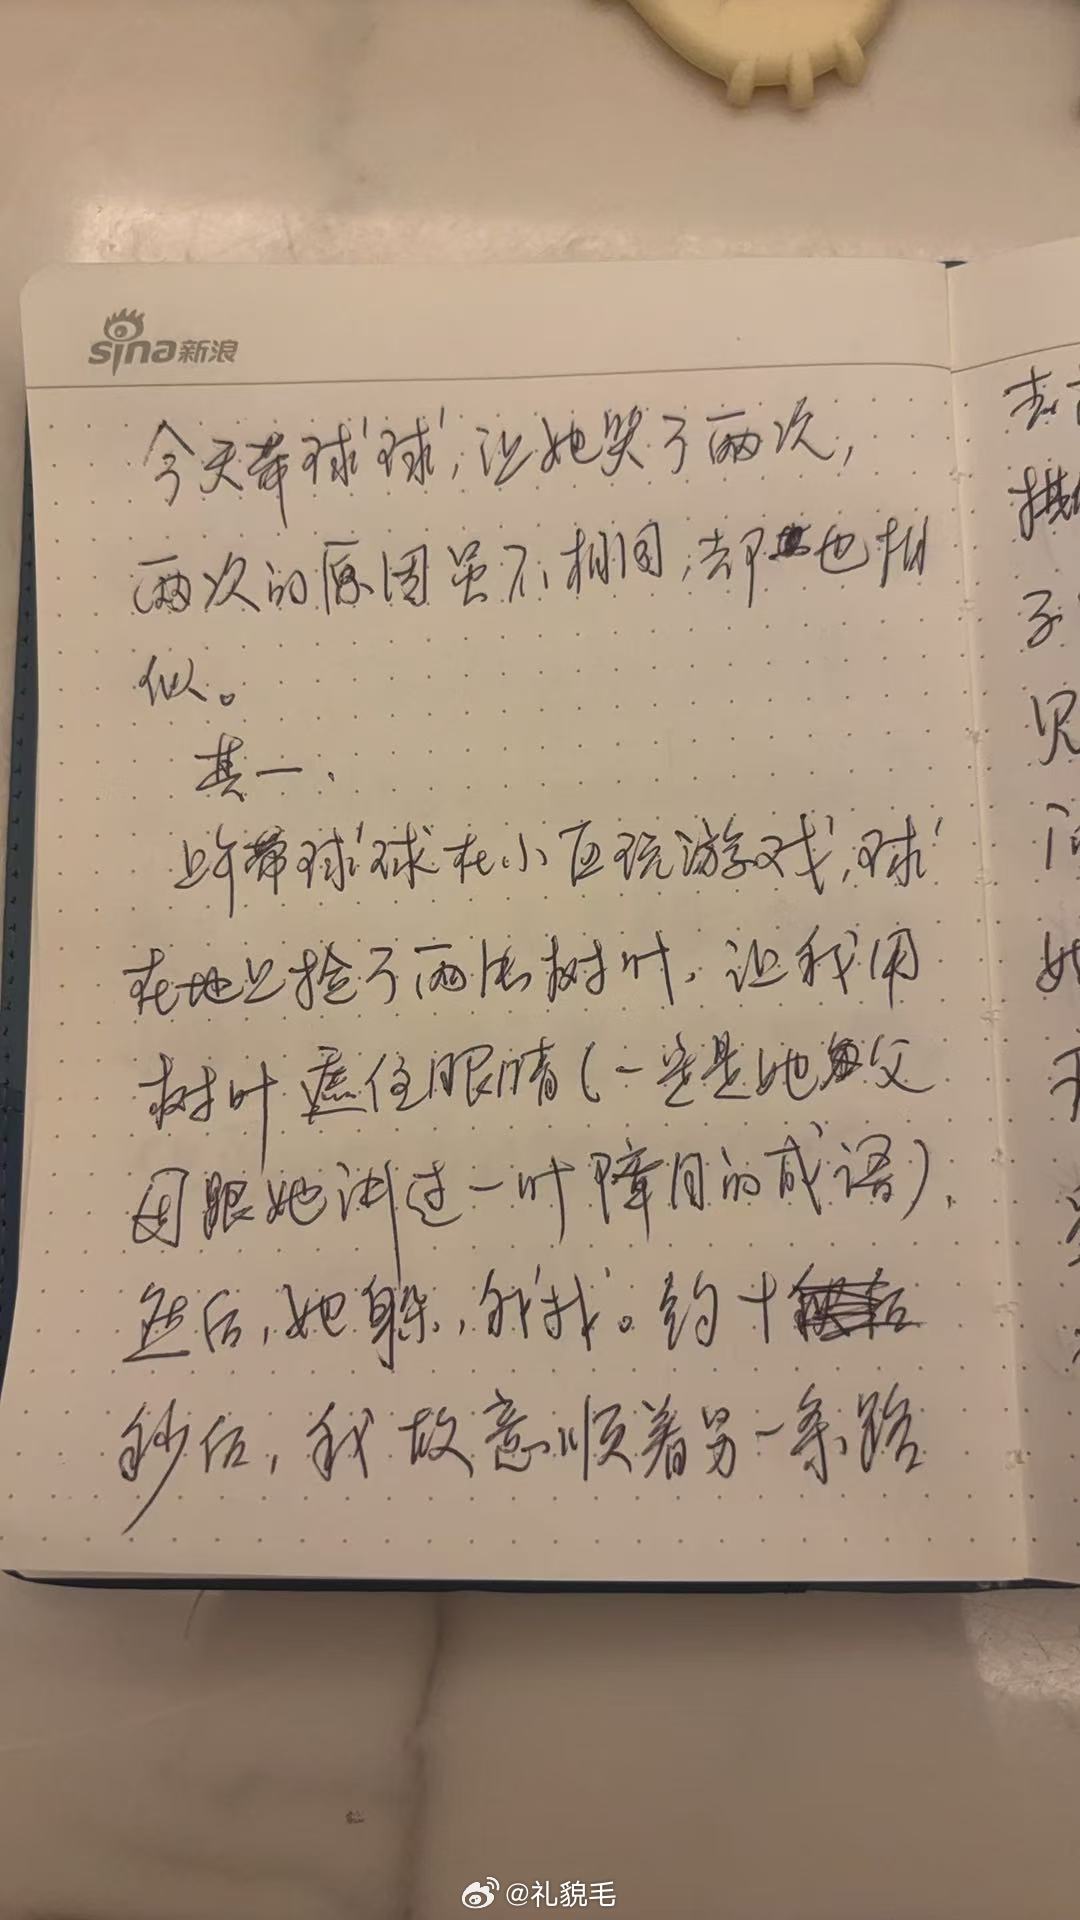 sina新浪
今天带球球,让她哭了两次,
两次的原因虽不相同,却也相
似。
其一、
上午带球球在小区玩游戏,球
在地上捡了两片树叶,让我用
树叶遮住眼睛(一定是她父
母跟她讲过一叶障目的成语),
然后,她躲,我找。约十
秒后,我故意顺着另一条路
去
子
见
@礼貌毛